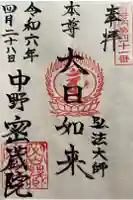 奉拝
弘法大師
本尊 大日如来
令和六年
四月二十八日
中野 密蔵院